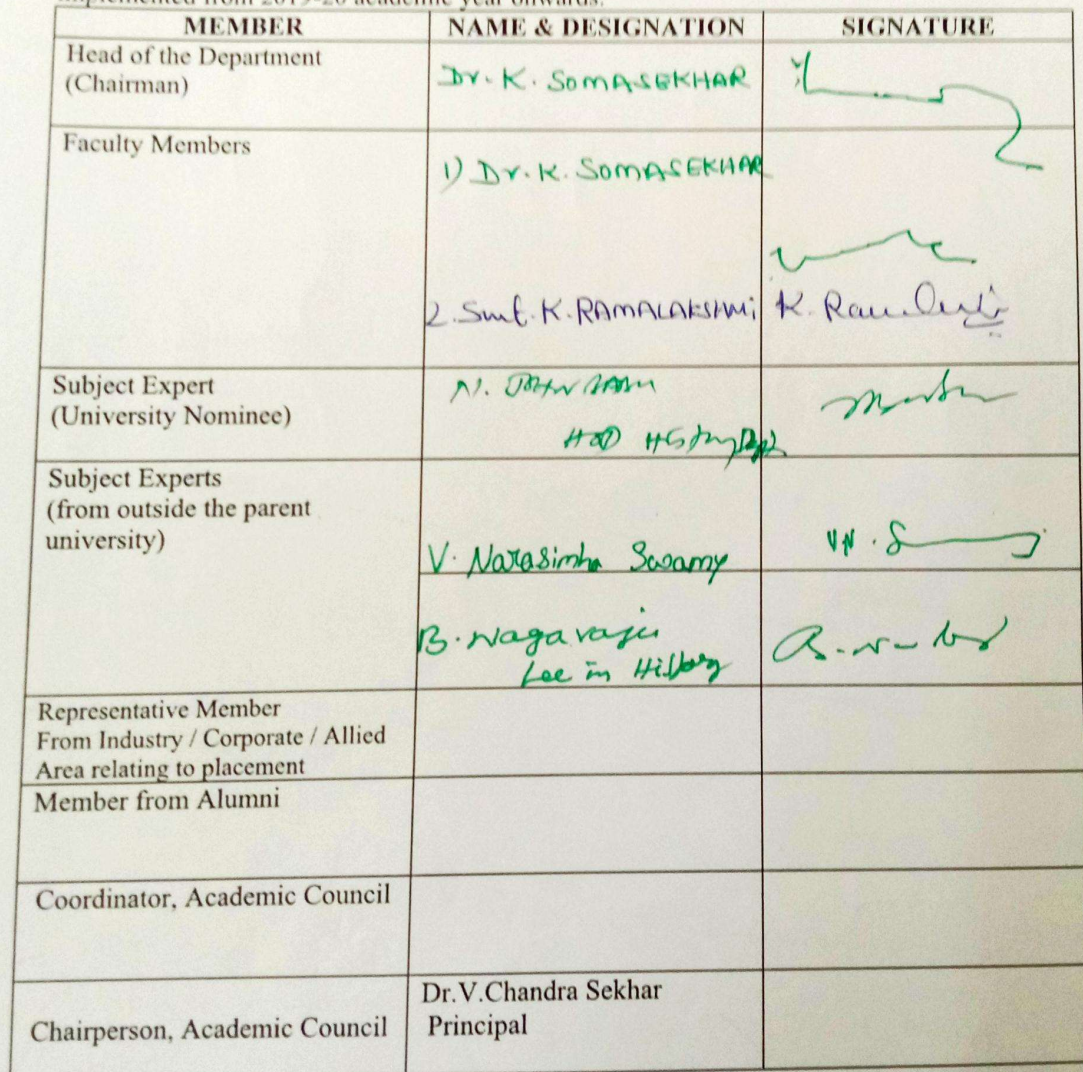 implemented from 2019-20 academic year onwards.
MEMBER NAME & DESIGNATION SIGNATURE
Head of the Department
(Chairman)
Dr. K. SOMASEKHAR
Faculty Members
1) Dr. K. SOMASEKHAR
2. Smt. K. RAMALAKSHMI K.
Subject Expert
(University Nominee)
N.
HOD History Dept
Subject Experts
(from outside the parent
university)
V. Narasimha Swamy VN. S
B. Nagaraju
Lec in History
Representative Member
From Industry / Corporate / Allied
Area relating to placement
Member from Alumni
Coordinator, Academic Council
Chairperson, Academic Council
Dr.V.Chandra Sekhar
Principal